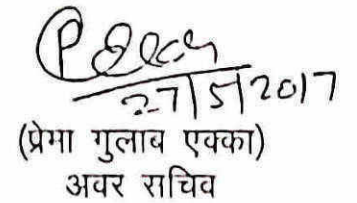 27/5/2017
(प्रेमा गुलाब एक्का)
अवर सचिव